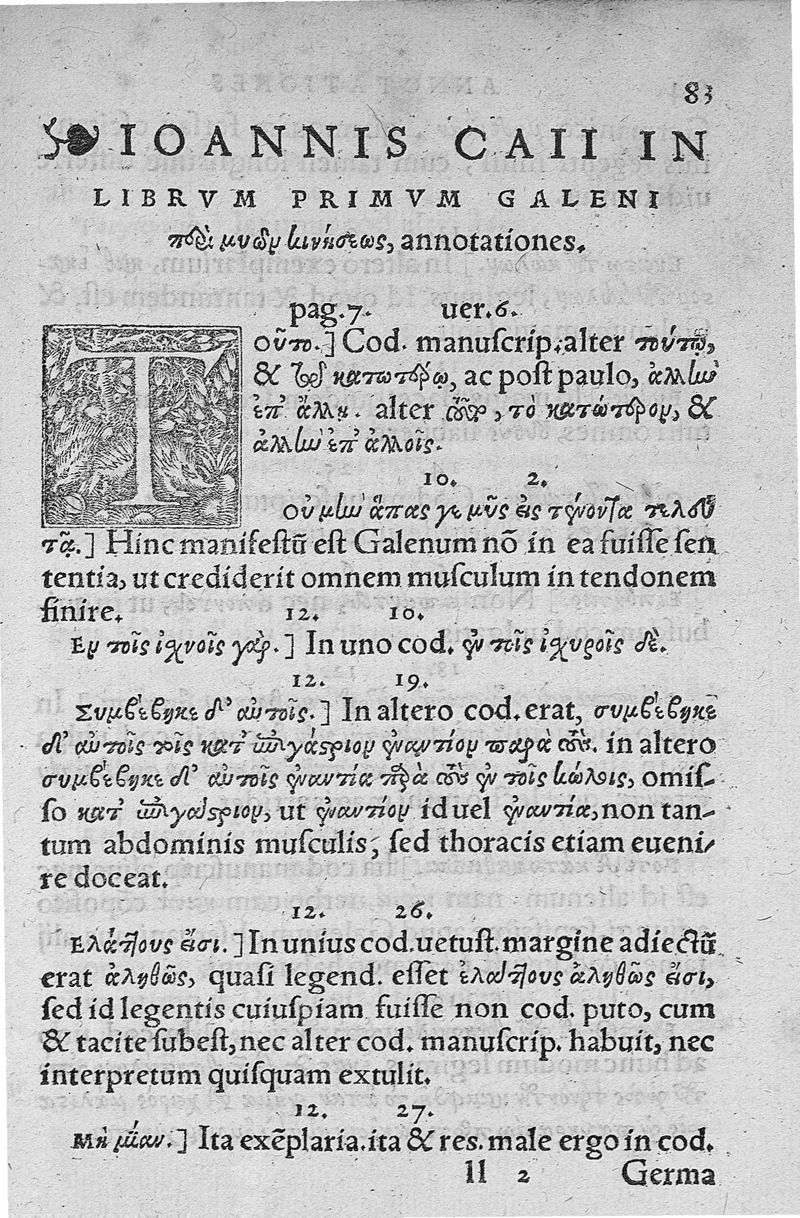 83
IOANNIS CAII IN
LIBRVM PRIMVM GALENI
περὶ μυῶν κινήσεως, annotationes.
pag.7. uer.6.
Τοῦτο.] Cod. manuſcrip.alter τούτῳ,
& τῷ κατωτέρω, ac poſt paulo, ἄλλων
ἐπ' ἄλλη. alter οὖν, τὸ κατώτερον, &
ἄλλων ἐπ' ἀλλοῖς.
10. 2.
οὐ μὴν ἅπας γε μῦς εἰς τένοντα τελευ
τᾷ.] Hinc manifeſtũ eſt Galenum nõ in ea fuiſſe ſen
tentia, ut crediderit omnem muſculum in tendonem
finire. 12. 10.
Εν τοῖς ἰχνοῖς γάρ.] In uno cod. ἐν τοῖς ἰχυροῖς δὲ.
12. 19.
Συμβέβηκε δι' αὐτοῖς.] In altero cod.erat, συμβέβηκε
δι' αὐτοῖς τοῖς κατ' ἐπιγάστριον ἐναντίον παρὰ τοὺς. in altero
συμβέβηκε δι' αὐτοῖς ἐναντία παρὰ τοὺς ἐν τοῖς κώλοις, omiſ-
ſo κατ' ἐπιγάστριον, ut ἐναντίον id uel ἐναντία, non tan-
tum abdominis muſculis, ſed thoracis etiam eueni-
re doceat.
12. 26.
Ελάττους εἰσι.] In unius cod.uetuſt. margine adiectũ
erat ἀληθῶς, quaſi legend. eſſet ἐλάττους ἀληθῶς εἰσι,
ſed id legentis cuiuſpiam fuiſſe non cod. puto, cum
& tacite ſubeſt, nec alter cod. manuſcrip. habuit, nec
interpretum quiſquam extulit.
12. 27.
Μὴ μίαν.] Ita exẽplaria.ita & res. male ergo in cod.
ll 2 Germa